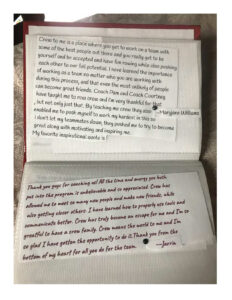 Crew to me is a place where you get to work on a team with
some of the best people out there and you really get to be
yourself and be accepted and have fun rowing while also pushing
each other to our full potential. I have learned the importance
of working as a team no matter who you are working with
during this process, and that even the most unlikely of people
can become great friends. Coach Pam and Coach Courtney
have taught me to row crew and I'm very thankful for that
, but not only just that. By teaching me crew they also
enabled me to push myself to work my hardest in this so
I don't let my teammates down, they pushed me to try to become
great along with motivating and inspiring me.
My favorite inspirational quote is
—Maryann Williams
Thank you guys for coaching us! All the time and energy you both
put into the program is unbelievable and so appreciated. Crew has
allowed me to meet so many new people and make new friends, while
also getting closer others. I have learned how to properly use tools and
communicate better. Crew has truly become an escape for me and I'm so
grateful to have a crew family. Crew means the world to me and I'm
so glad I have gotten the opportunity to do it. Thank you from the
bottom of my heart for all you do for the team.
—Jorria